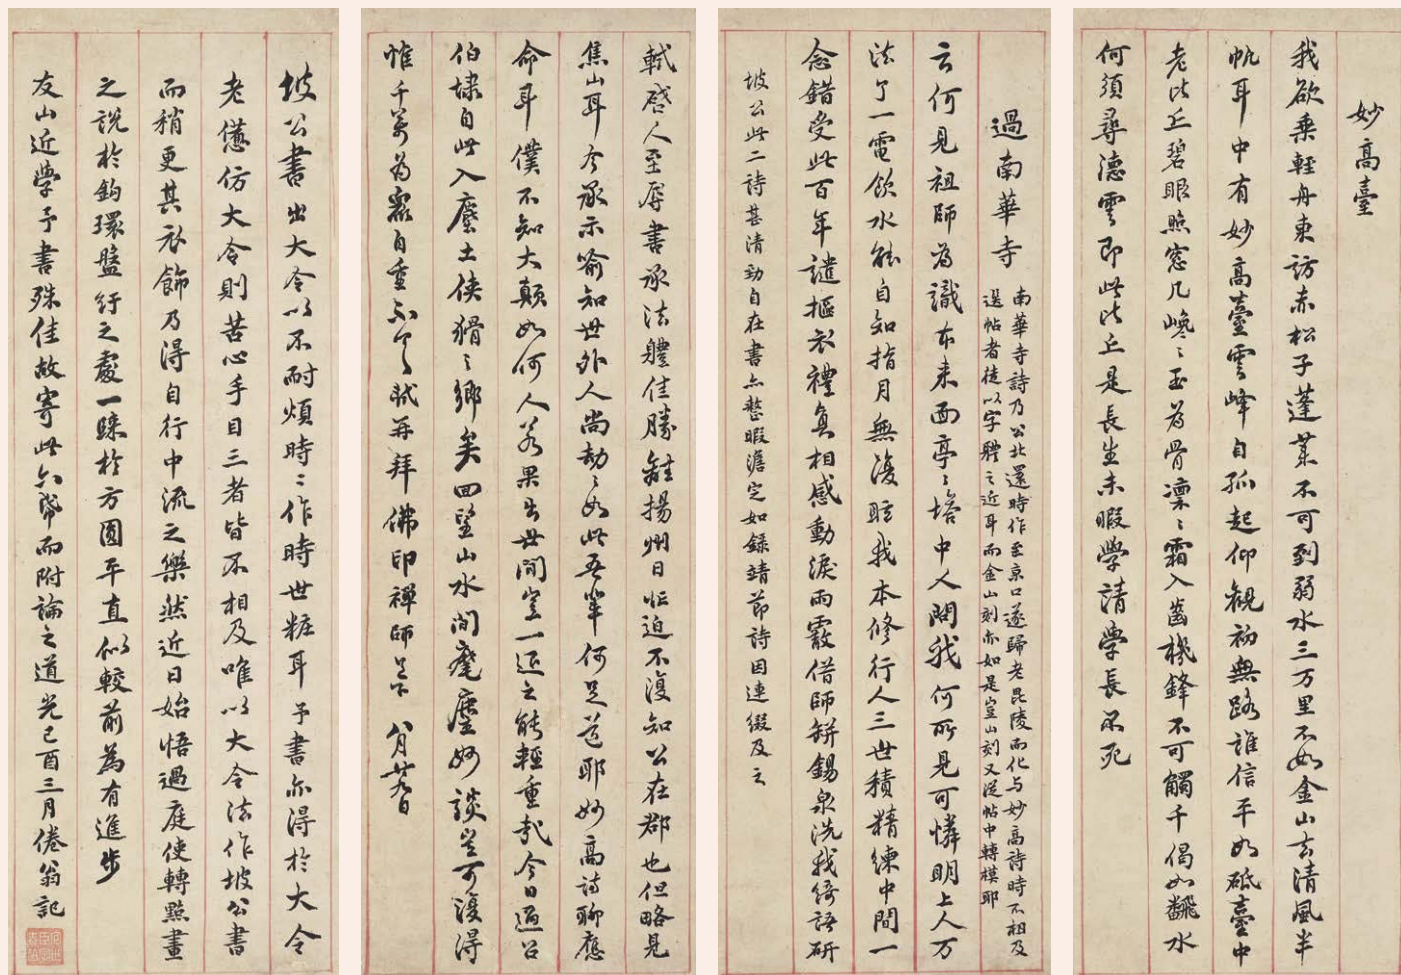 妙高臺
我欲乘輕舟東訪赤松子蓬萊不可到弱水三万里不如金山去清風半
帆耳中有妙高臺雲峰自孤起仰観初無路誰信平如砥臺中
老比丘碧眼照窓几巉〻玉為骨凜〻霜入齒機鋒不可觸千偈如飜水
何須尋德雲即此比丘是長生未暇學請學長不死
過南華寺
南華寺詩乃公北還時作至京口遂歸老毘陵而化与妙高詩時不相及
選帖者徒以字體之近耳而金山刻亦如是豈山刻又從帖中轉模耶
云何見祖師為識本来面亭〻塔中人問我何所見可憐明上人万
法了一電飲水能自知指月無復眩我本修行人三世積精練中間一
念錯受此百年譴摳衣禮真相感動淚雨霰借師錫泉洗我綺語研
坡公此二詩甚清勁自在書亦整暇澹定如錄靖節詩因連綴及之
軾啓人至辱書承法體佳勝離揚州日忙迫不復知公在郡也但略見
焦山耳今承示喻知世外人尚劫〻如此吾輩何足道耶妙高詩聊應
命耳僕不知大顛如何人若果出世間豈一退之能輕重哉今日過召
伯埭自此入塵土俠猾〻鄉矣回望山水間麾麈妙談豈可復得
惟千萬為衆自重不一〻軾再拜佛印禪師足下 八月廿八日
坡公書出大令以不耐煩時〻作時世粧耳予書亦得於大令
老傖仿大令則苦心手目三者皆不相及唯以大令法作坡公書
而稍更其衣飾乃得自行中流之樂然近日始悟過庭使轉點畫
之説於鉤環盤紆之處一睐於方圓平直似較前為有進步
友山近學予書殊佳故寄此六帋而附論之道光己酉三月倦翁記